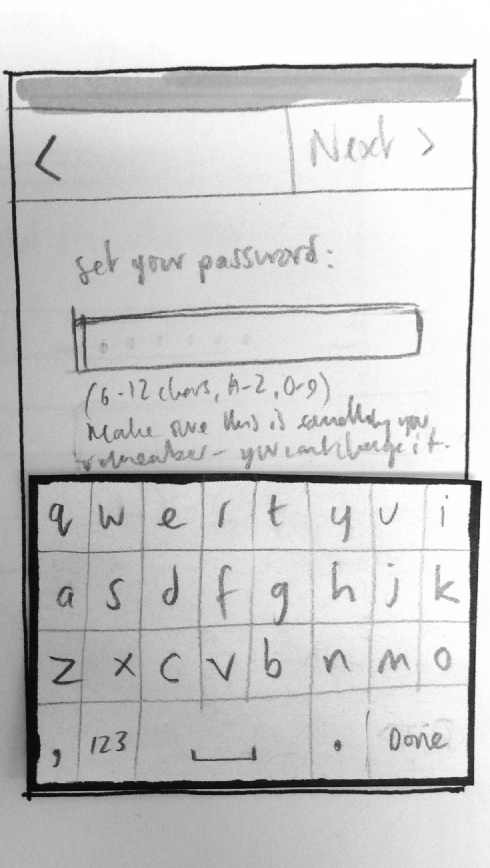 < Next >
set your password:
(6-12 chars, A-Z, 0-9)
Make sure this is something you
remember - you can't change it.
q w e r t y u i
a s d f g h j k
z x c v b n m o
, 123 . Done